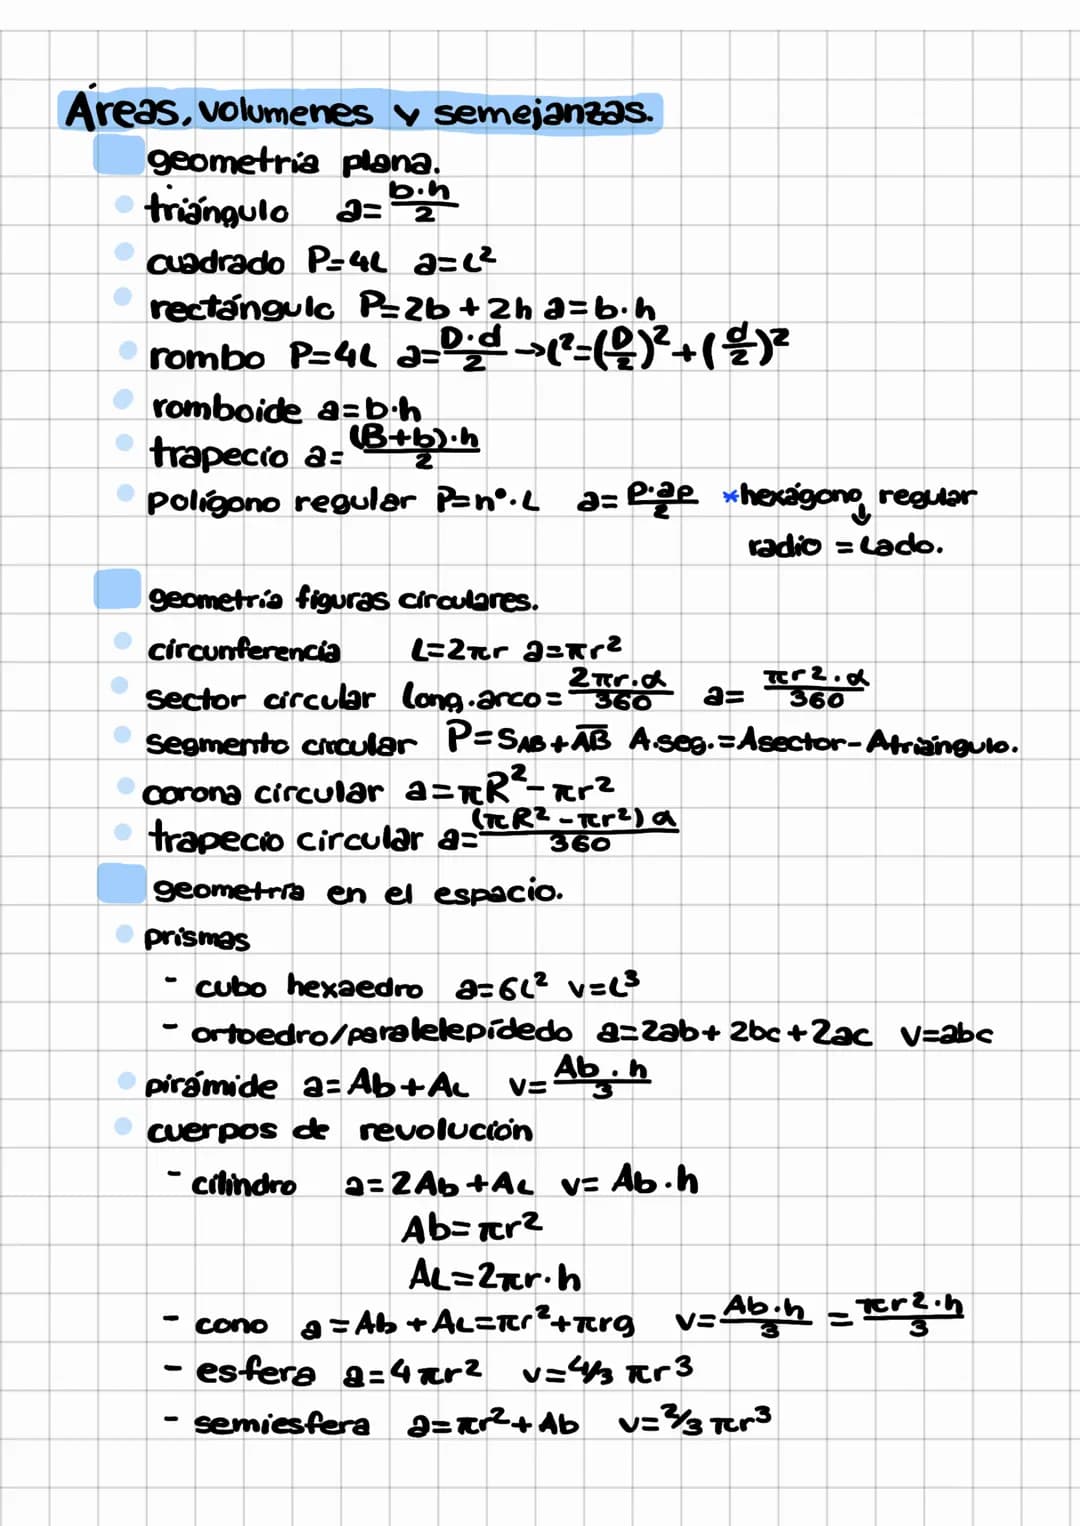 Áreas, volumenes y semejanzas.
geometría plana.
triángulo a= b·h/2
cuadrado P=4L a=L²
rectángulo P=2b+2h a=b·h
rombo P=4L a= D·d/2 →L²=(D/2)²+(d/2)²
romboide a=b·h
trapecio a= (B+b)·h/2
polígono regular P=nº·L a= P·ap/2 *hexágono regular
↓
radio = Lado.
geometría figuras circulares.
circunferencia L=2πr a=πr²
sector circular long.arco= 2πr·α/360 a= πr²·α/360
segmento circular P=SAB+A̅B̅ A.seg.=Asector-Atriángulo.
corona circular a=πR²-πr²
trapecio circular a= (πR²-πr²)α/360
geometría en el espacio.
prismas
- cubo hexaedro a=6L² v=L³
- ortoedro/paralelepídedo a=2ab+2bc+2ac v=abc
pirámide a=Ab+AL v= Ab·h/3
cuerpos de revolución
- cilindro a=2Ab+AL v= Ab·h
Ab=πr²
AL=2πr·h
- cono a=Ab+AL=πr²+πrg v= Ab·h/3 = πr²·h/3
- esfera a=4πr² v=4/3 πr³
- semiesfera a=πr²+Ab v=2/3 πr³